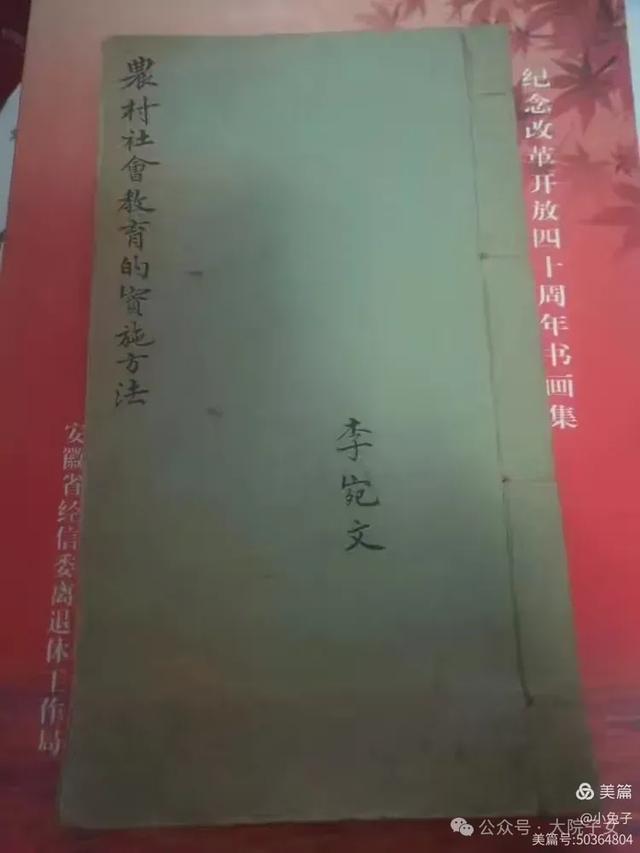 農村社會教育的實施方法
李宛文
纪念改革开放四十周年书画集
安徽省经信委离退休工作局
美篇
@小兔子
公众号·大院子女
美篇号:50364804